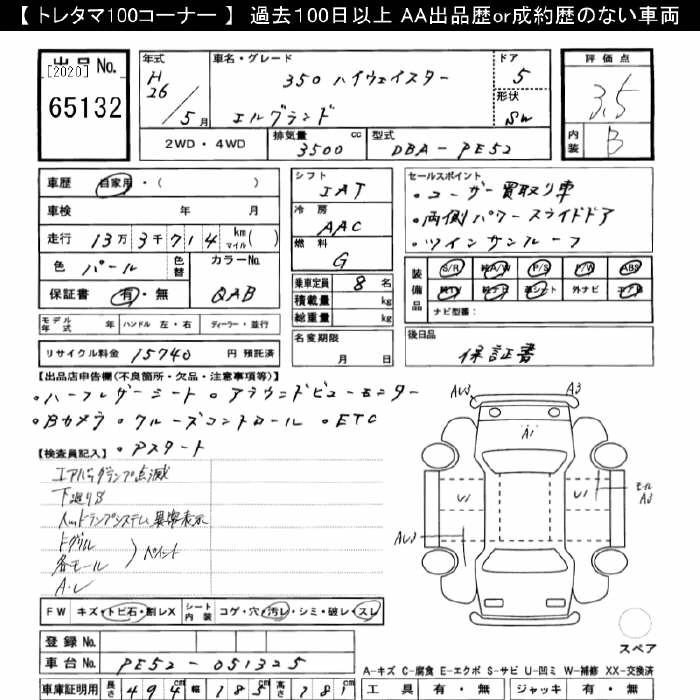 【 トレタマ100コーナー 】 過去100日以上 AA出品歴or成約歴のない車両
出品 No. [2020] 65132
年式 H 26/5月
車名・グレード 350 ハイウェイスター エルグランド
ドア 5
形状 SW
評価点 3.5
内装 B
2WD・4WD
排気量 3500 cc
型式 DBA-PE52
車歴 自家用・( )
車検 年 月
走行 13万3千714 km マイル ( )
色 パール 色替
カラーNo. QAB
保証書 有・無
シフト IAT
冷房 AAC
燃料 G
乗車定員 8 名
積載量 kg
総重量 kg
セールスポイント
・ユーザー買取り車
・両側パワースライドドア
・ツインサンルーフ
装備品 S/R 純A/W P/S P/W ABS
純TV 純ナビ 革シート 外ナビ エアB
ナビ型番:
モデル年式 年 ハンドル 左・右 ディーラー・並行
リサイクル料金 15740 円 預託済
名変期限 月 日
後日品 保証書
【出品店申告欄(不良箇所・欠品・注意事項等)】
・ハーフレザーシート ・アラウンドビューモニター
・Bカメラ ・クルーズコントロール ・ETC
・Pスタート
【検査員記入】
エアバッグランプ点滅
下廻りS
各モール
ペイント
A・U
FW キズ・トビ石・割レX シート内装 コゲ・穴・汚レ・シミ・破レ・スレ
登録 No.
車台 No. PE52-051325
車庫証明用 長さ 494 cm 幅 185 cm 高さ 181 cm
AU3 A3
A1
U1 U1
モール A3
AU3
スペア
A-キズ C-腐食 E-エクボ S-サビ U-凹ミ W-補修 XX-交換済
工具 有・無 ジャッキ 有・無